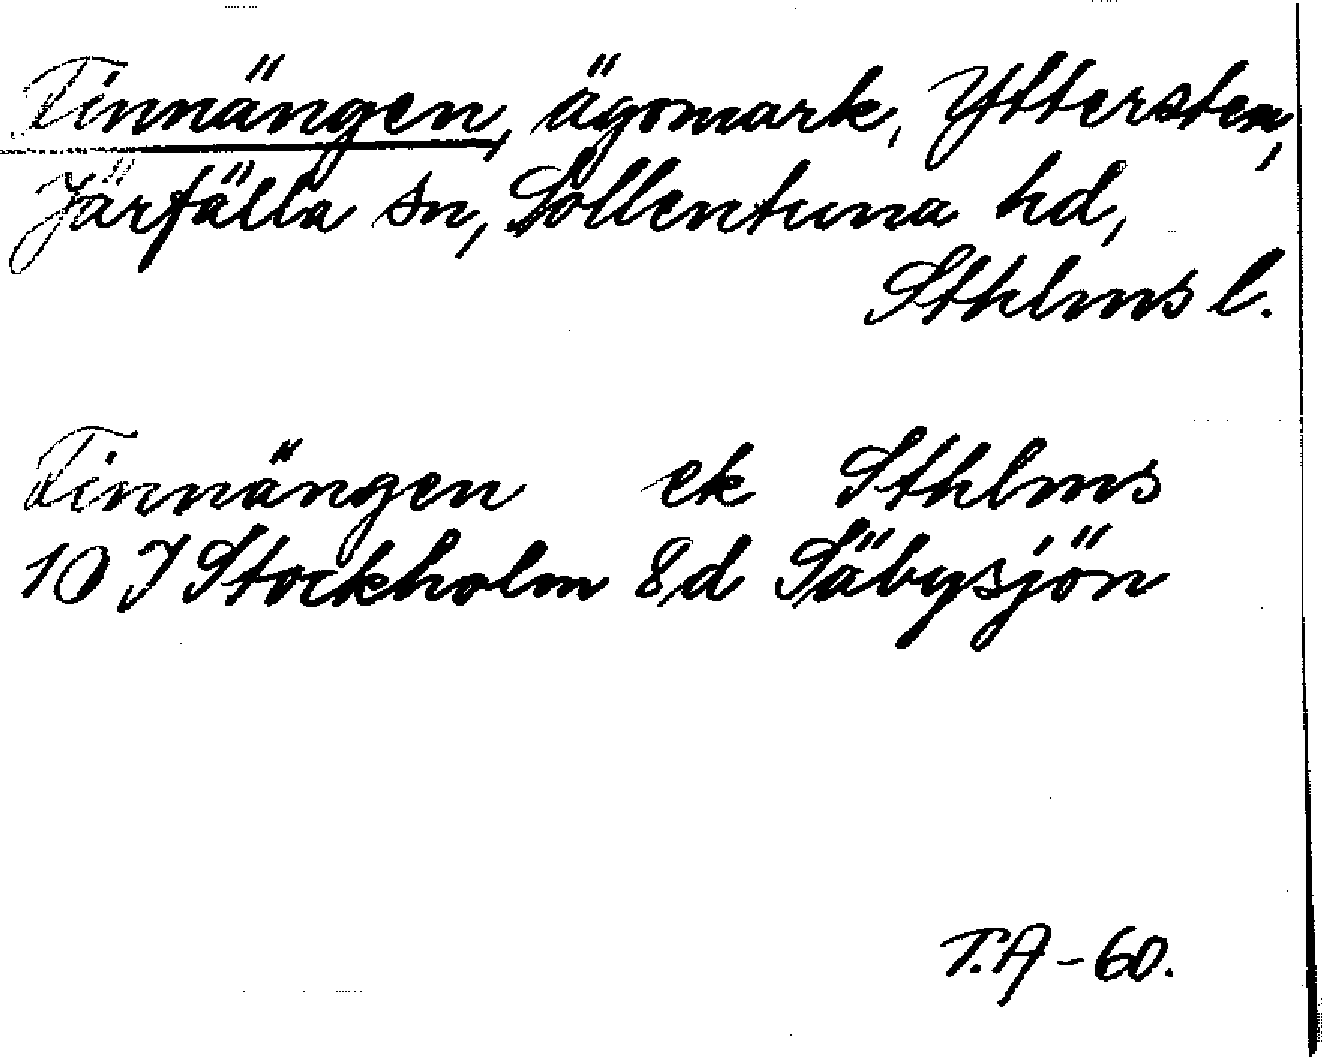 Tinnängen, ägomark, Yttersten,
Järfälla sn, Sollentuna hd,
Sthlms l.
Tinnängen ek Sthlms
10 I Stockholm 8d Säbysjön
T.A - 60.